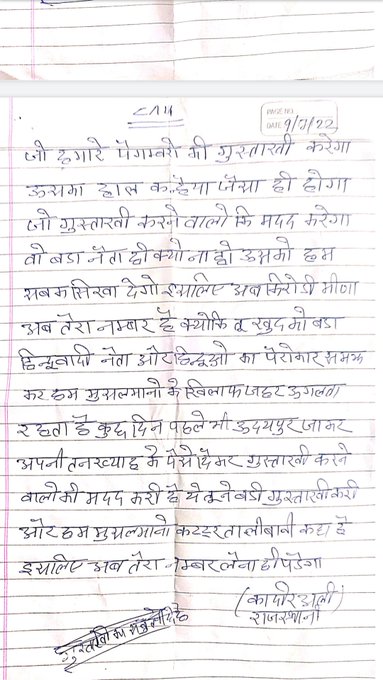 PAGE NO.
DATE 9/7/22
जो हमारे पैगम्बरो की गुस्ताखी करेगा
उसका हाल कन्हैया जैसा ही होगा
जो गुस्ताखी करने वालो कि मदद करेगा
वो बडा नेता ही क्यो ना हो उसको हम
सबक सिखा देगो इसलिए अब किरोडी मीणा
अब तेरा नम्बर है क्योकि तू खुद को बडा
हिन्दूवादी नेता और हिन्दूओ का पेरोकार समझ
कर हम मुसलमानो के खिलाफ जहर उगलता
रहता है कुछ दिन पहले भी उदयपुर जाकर
अपनी तनख्याह के पैसे देकर गुस्ताखी करने
वालो की मदद करी है ये तूने बडी गुस्ताखी करी
और हम मुसलमानो कट्टर तालीबानी कहा है
इसलिए अब तेरा नम्बर लेना ही पडेगा
(कादीर अली)
राजस्थानी